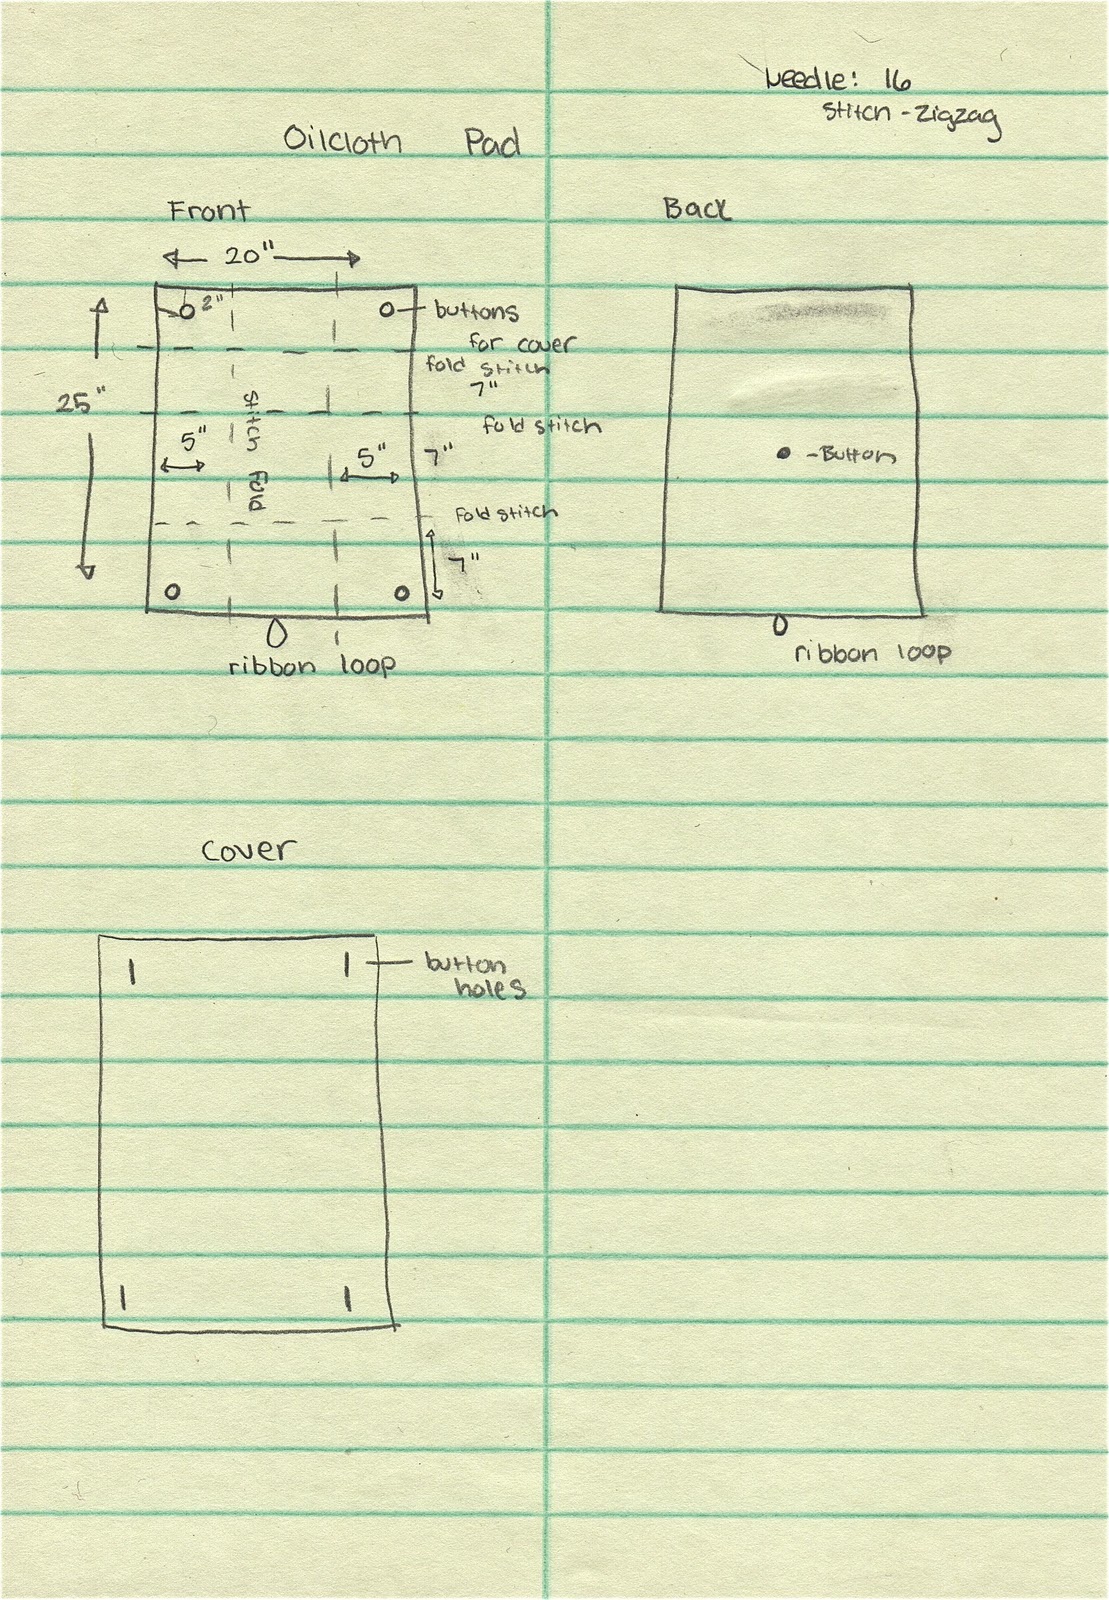 Needle: 16
stitch - zigzag
Oilcloth Pad
Front
Back
20"
2"
buttons
for cover
fold stitch
7"
25"
stitch fold
fold stitch
5"
5"
7"
- Button
fold stitch
7"
ribbon loop
ribbon loop
Cover
button
holes